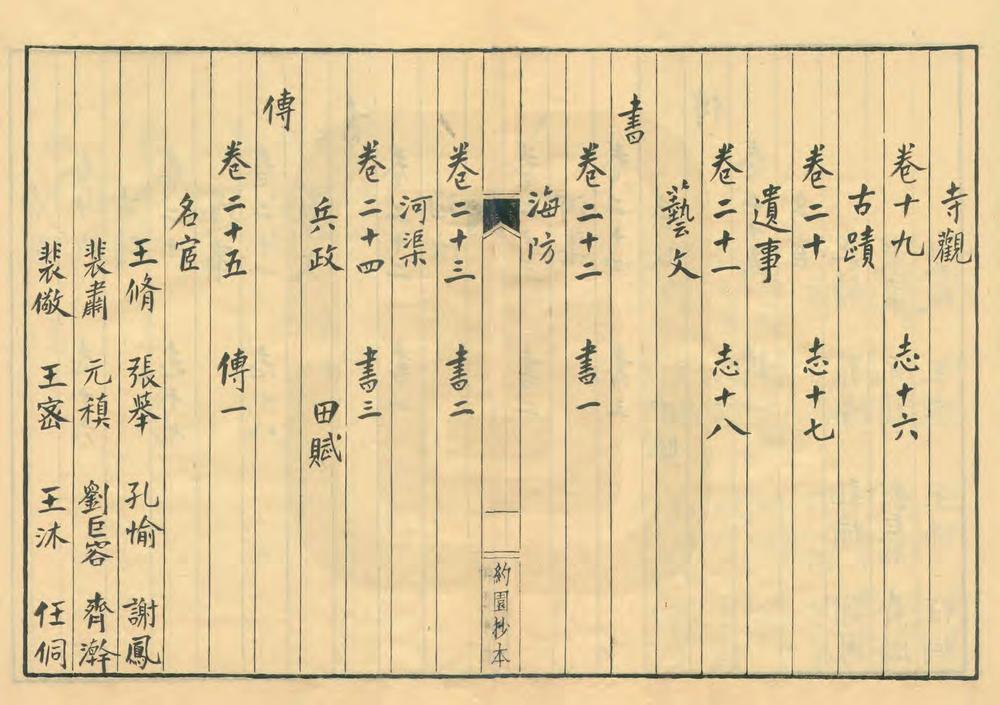 寺觀
卷十九 志十六
古蹟
卷二十 志十七
遺事
卷二十一 志十八
藝文
書
卷二十二 書一
海防
約園抄本
卷二十三 書二
河渠
卷二十四 書三
兵政 田賦
傳
卷二十五 傳一
名宦
王脩 張舉 孔愉 謝鳳
裴肅 元稹 劉巨容 齊澣
裴儆 王密 王沐 任侗